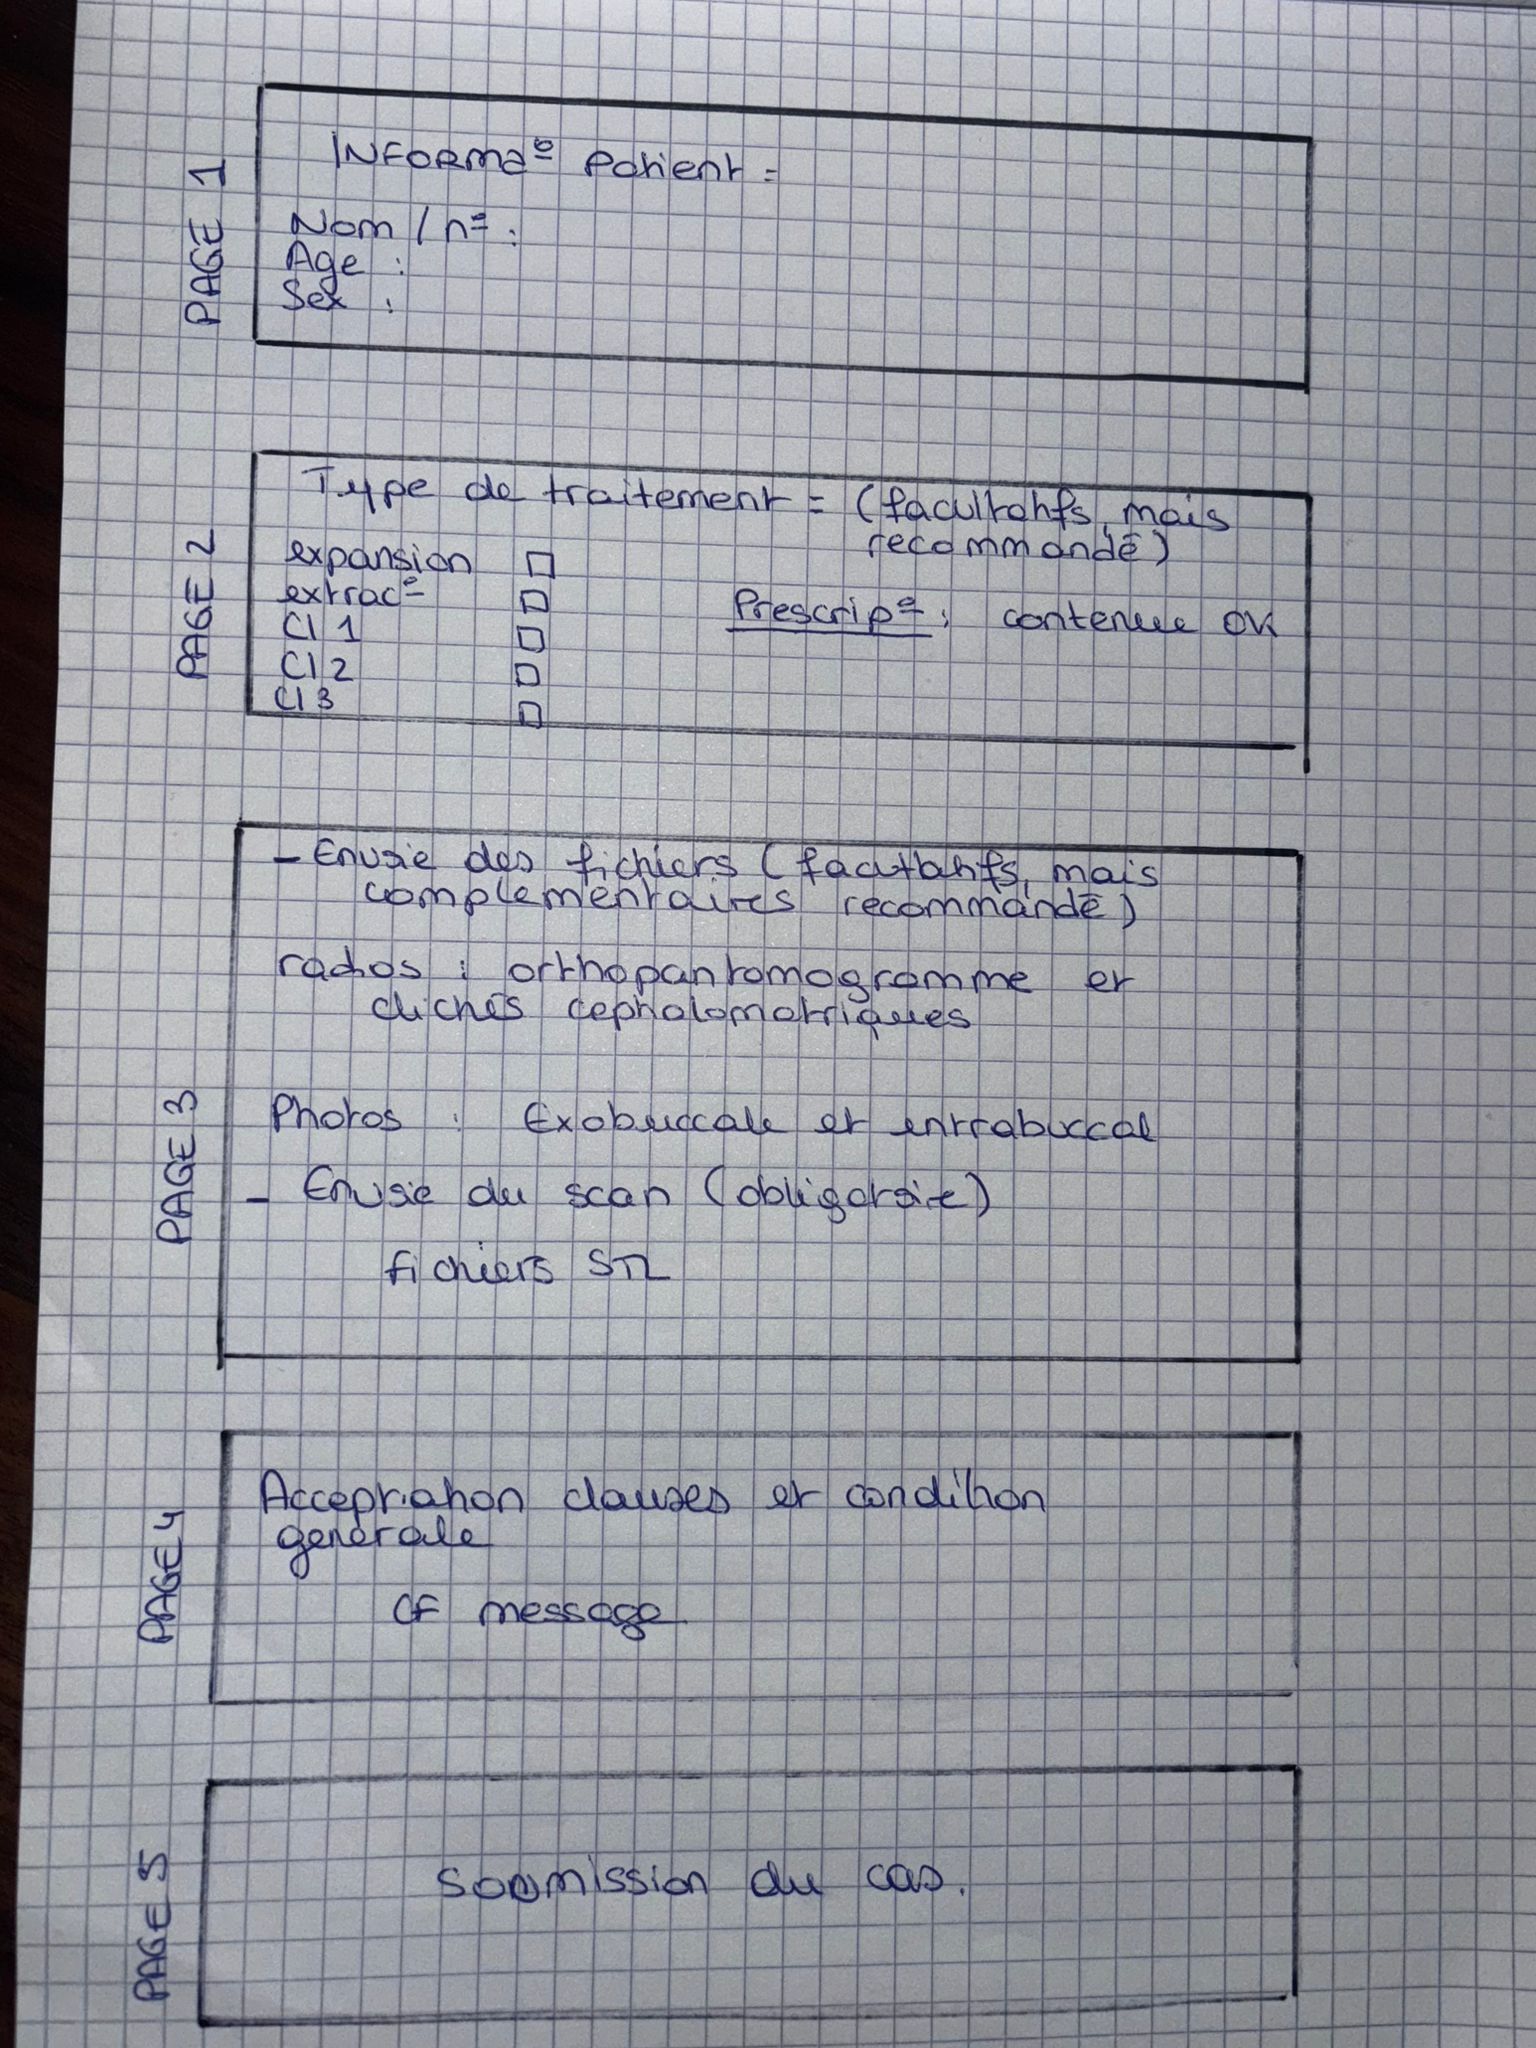 PAGE 1
INFORMAº Patient =
Nom / nº :
Age :
Sex :
PAGE 2
Type de traitement = (facultatifs, mais
recommandé)
expansion □
extracº □
Prescripº : contenue OK
Cl 1 □
Cl 2 □
Cl 3 □
PAGE 3
- Envoie des fichiers (facultatifs, mais
complementaires recommandé)
radios : orthopantomogramme et
clichés cephalometriques
Photos : Exobuccale et intrabuccal
- Envoie du scan (obligatoire)
fichiers STL
PAGE 4
Acceptation clauses et condition
generale
CF message
PAGE 5
Soumission du cas.